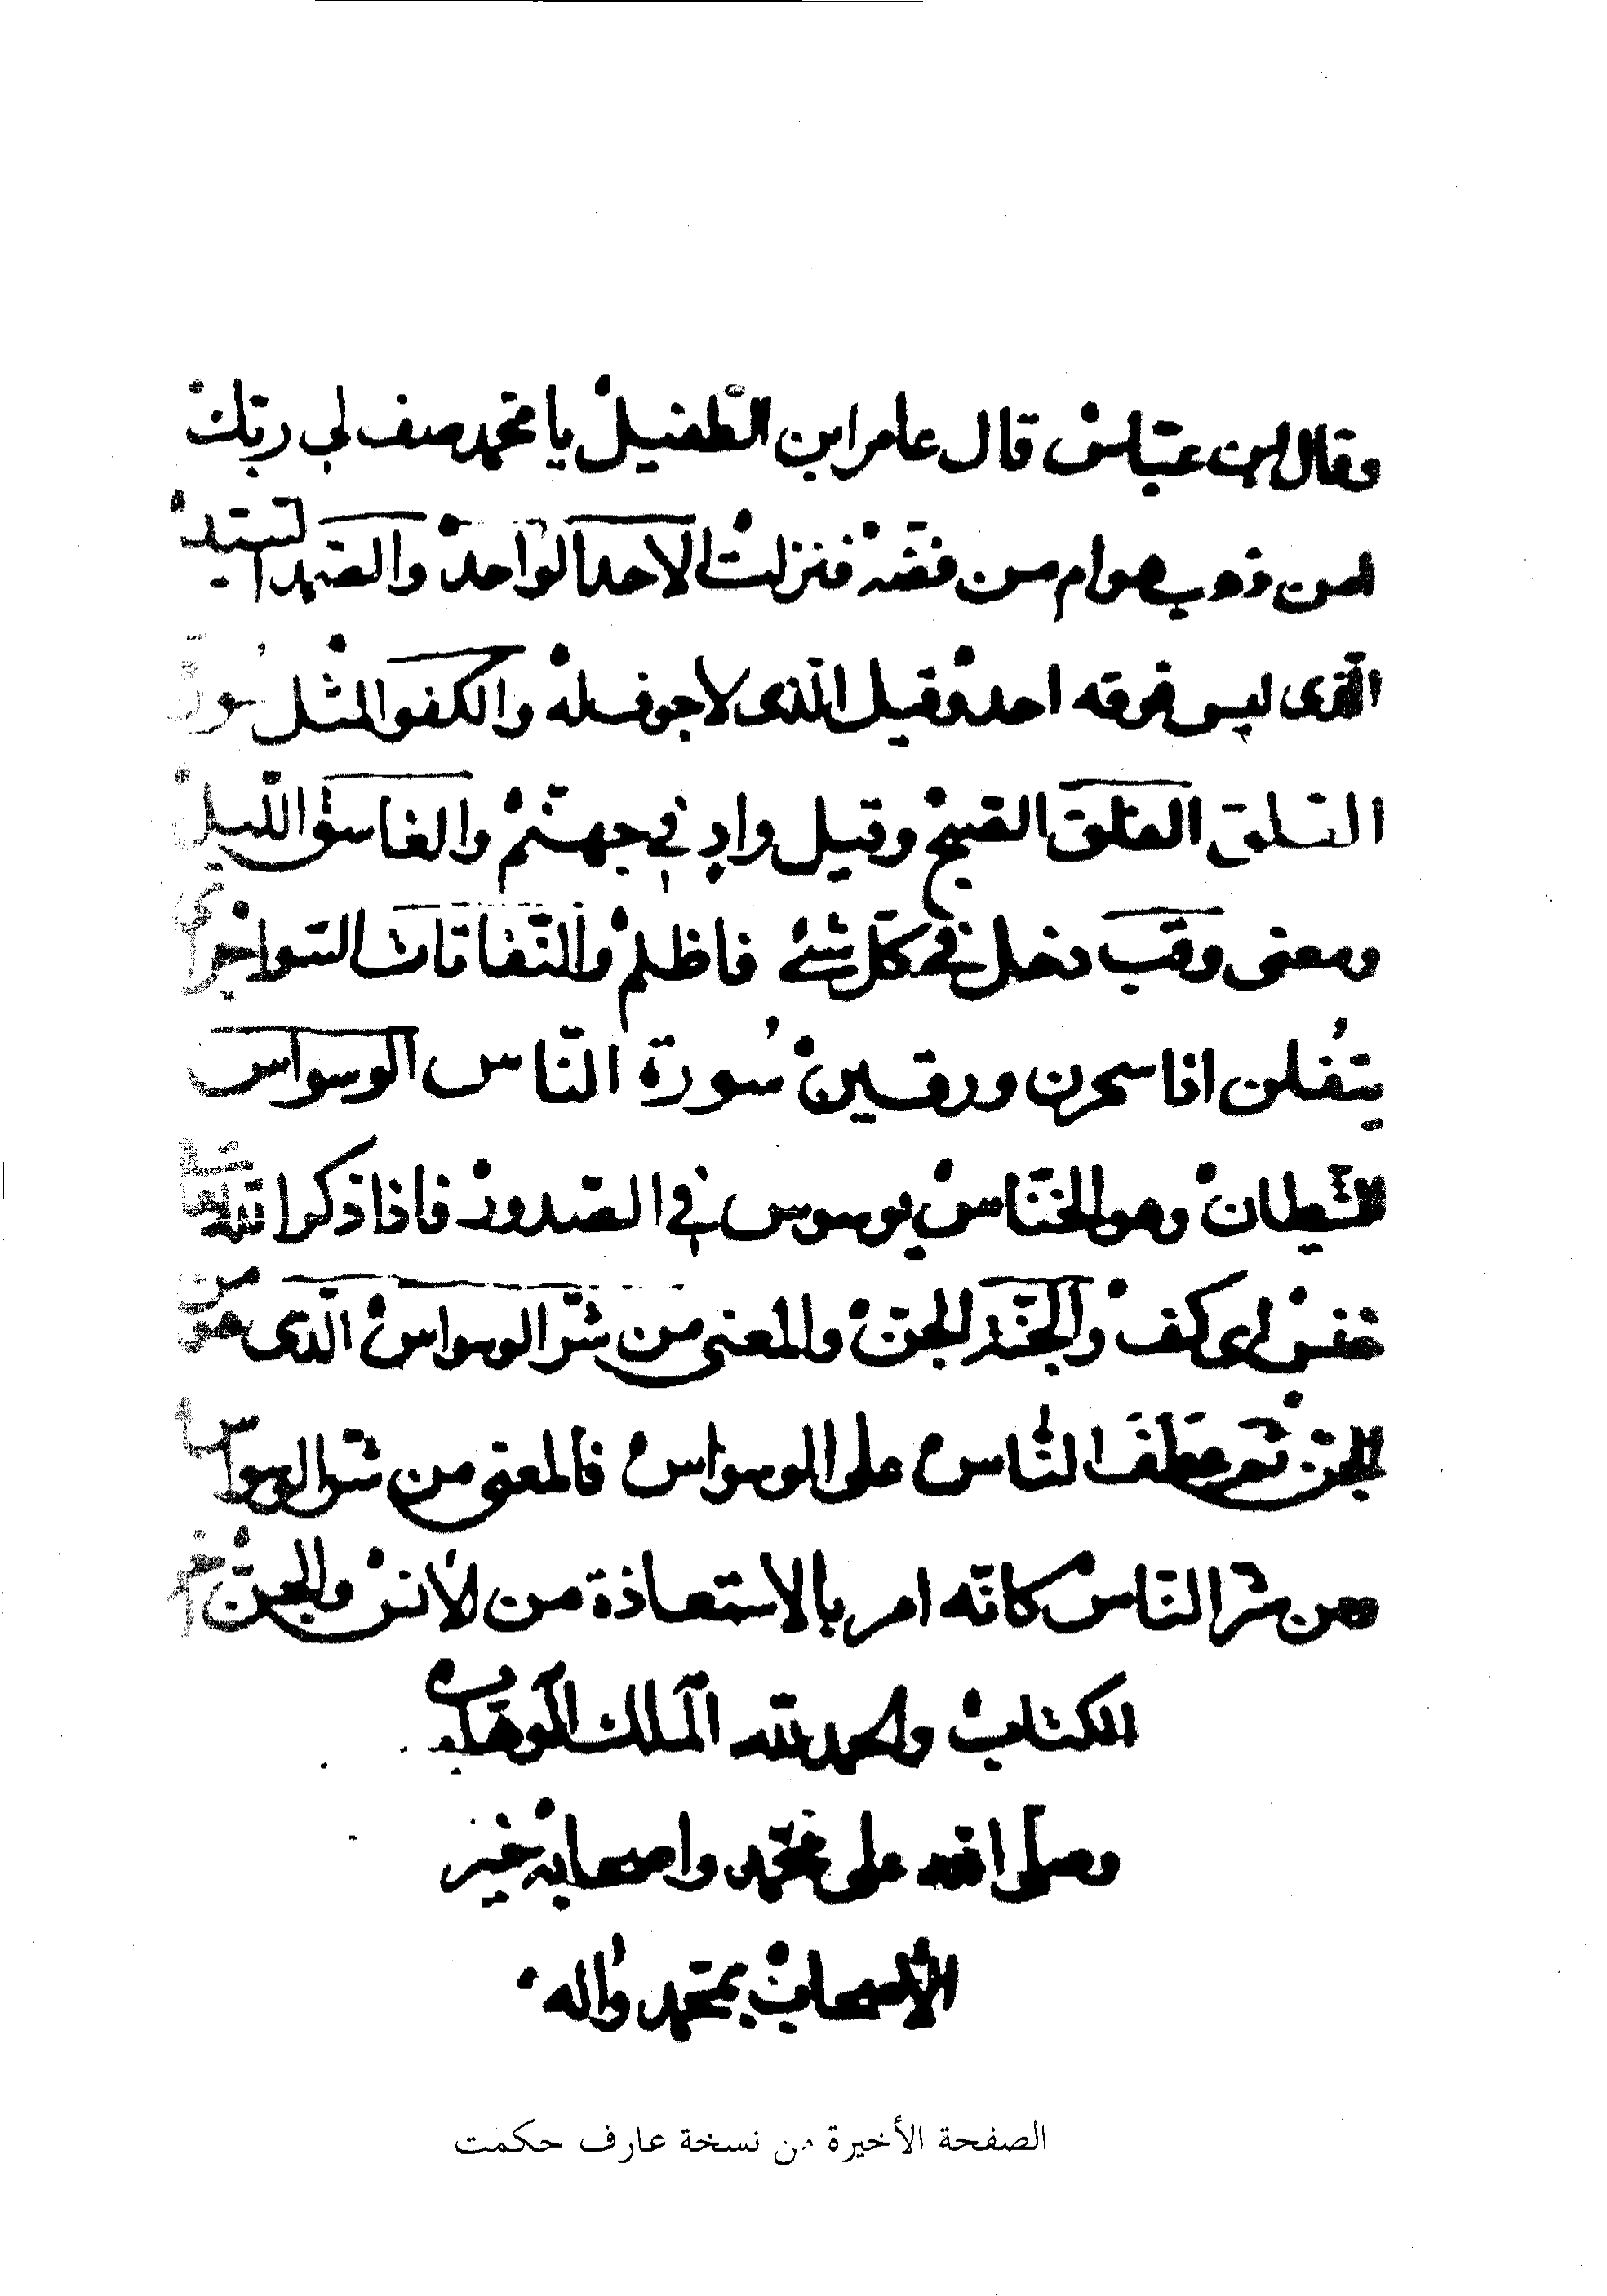 وقال ابن عبّاس قال عامر ابن الطّفيل يا محمّد صف لي ربّك
امن ذهب هوام من فضّة فنزلت الاحد الواحد والصّمد السّيّد
الّذى ليس فوقه احد وقيل الّذى لا جوف له والكفو المثل سورة
الفلق الفلق الصّبح وقيل وادٍ في جهنّم والغاسق اللّيل
ومعنى وقب دخل في كلّ شئ فاظلم والنّفاثات السّواحر
يتفُلن اذا سحرن ورقين سُورة النّاس الوسواس
الشّيطان وهو الخنّاس يوسوس في الصّدور فاذا ذكر الله تعا
خنس اى كف والجنّة الجنّ والمعنى من شرّ الوسواس الّذى هو من
الجنّ ثم عطفَ النّاس على الوسواس فالمعنى من شرّ الوسواس
ومن شرّ النّاس كانّه امر بالاستعاذة من الأنس والجنّ آخر
الكتاب والحمد لله الملك الوهّاب
وصلى الله على محمّد واصحابه خير
الأصحاب بمحمّد واله
الصفحة الأخيرة من نسخة عارف حكمت